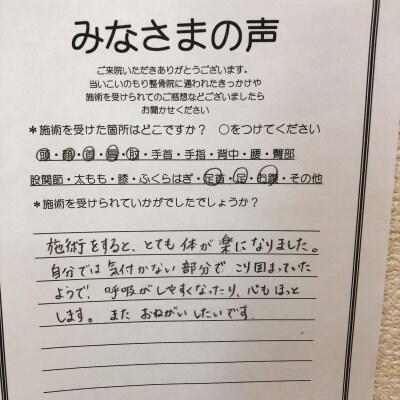 みなさまの声
ご来院いただきありがとうございます。
当いこいのもり整骨院に通われたきっかけや
施術を受けられてのご感想などございましたら
お聞かせください
＊施術を受けた箇所はどこですか？ ○をつけてください
頭・顔・首・肩・肘・手首・手指・背中・腰・臀部
股関節・太もも・膝・ふくらはぎ・足首・足・お腹・その他
＊施術を受けられていかがでしたでしょうか？
施術をすると、とても体が楽になりました。
自分では気付かない部分でこり固まっていた
ようで、呼吸がしやすくなったり、心もほっと
します。またおねがいしたいです